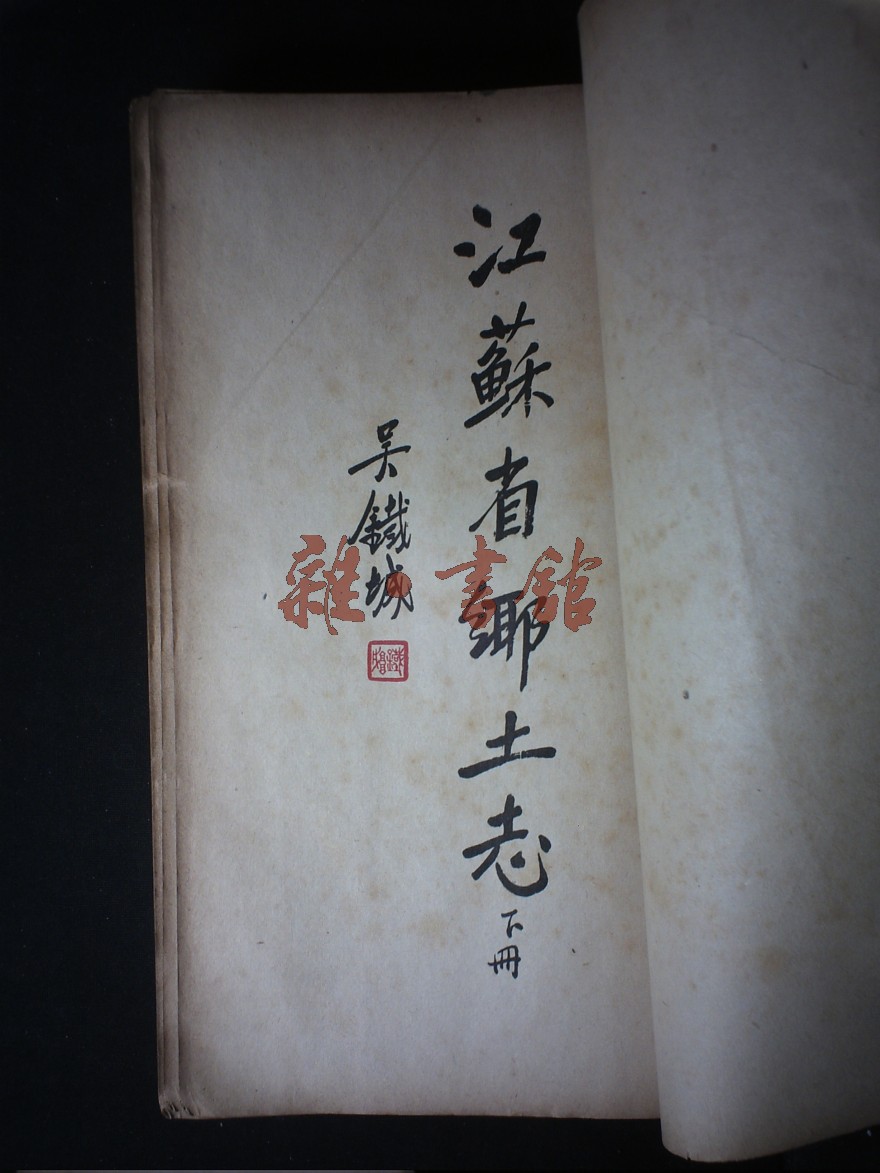 江蘇省鄉土志 下冊
吴鐵城
雜·書館